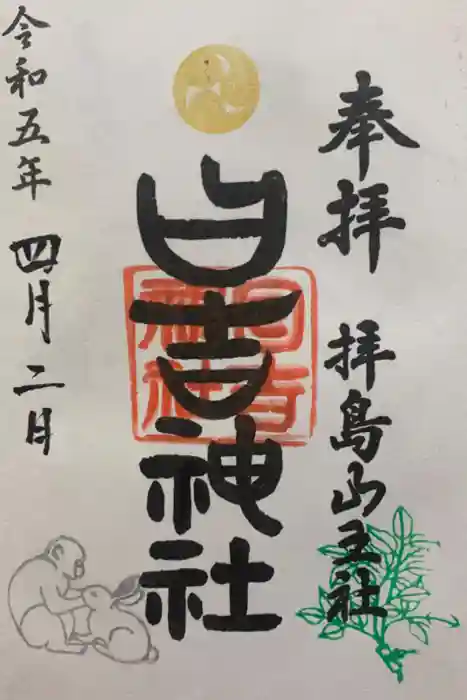 奉拝 拝島山王社
日吉神社
日吉
神社
令和五年 四月二日